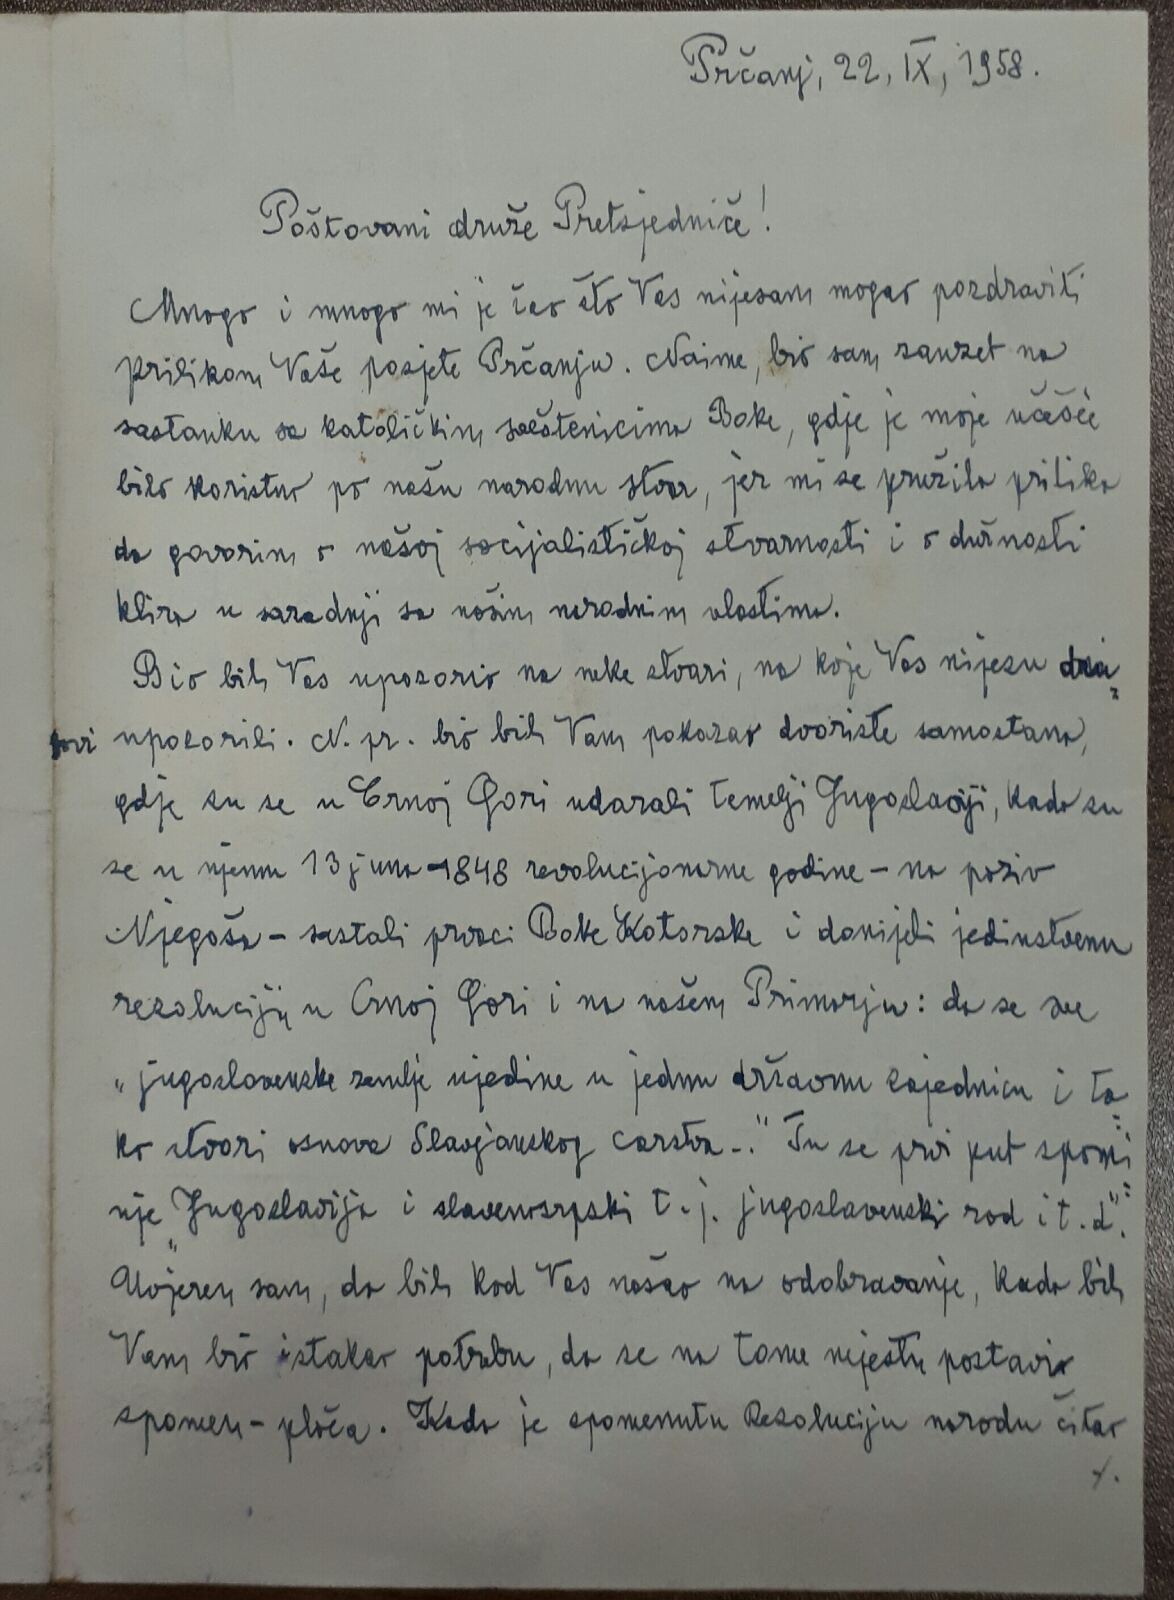 Prčanj, 22, IX, 1958.
Poštovani druže Pretsjedniče!
Mnogo i mnogo mi je žao što Vas nijesam mogao pozdraviti
prilikom Vaše posjete Prčanju. Naime, bio sam zauzet na
sastanku sa katoličkim sveštenicima Boke, gdje je moje učešće
bilo korisno po našu narodnu stvar, jer mi se pružila prilika
da govorim o našoj socijalističkoj stvarnosti i o dužnosti
klira u saradnji sa našim narodnim vlastima.
Bio bih Vas upozorio na neke stvari, na koje Vas nijesu
upozorili. N. pr. bio bih Vam pokazao dvorište samostana,
gdje su se u Crnoj Gori udarali temelji Jugoslaviji, kada su
se u njemu 13 juna 1848 revolucijonarne godine – na poziv
Njegoša – sastali prvaci Boke Kotorske i donijeli jedinstvenu
rezoluciju u Crnoj Gori i na našem Primorju: da se sve
„jugoslavenske zemlje ujedine u jednu državnu zajednicu i ta-
ko stvori osnova Slavjanskog carstva..." Tu se prvi put spomi-
nje „Jugoslavija i slavenosrpski t.j. jugoslavenski rod i t.d".
Uvjeren sam, da bih kod Vas našao na odobravanje, kada bih
Vam bio istakao potrebu, da se na tome mjestu postavi
spomen-ploča. Kada je spomenutu Rezoluciju narodu čitao
./.